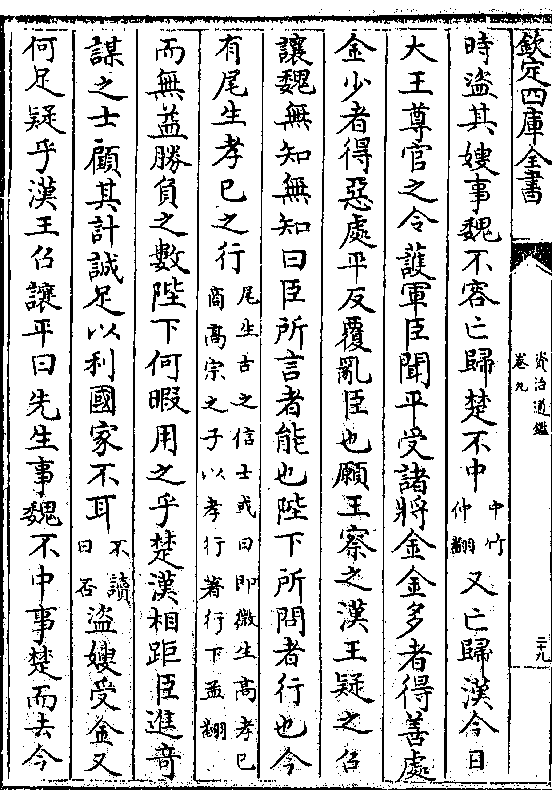 欽定四庫全書
資治通鑑
卷九
二十九
時盜其嫂事魏不容亡歸楚不中中竹仲翻又亡歸漢今日
大王尊官之令護軍臣聞平受諸將金金多者得善處
金少者得惡處平反覆亂臣也願王察之漢王疑之召
讓魏無知無知曰臣所言者能也陛下所問者行也今
有尾生孝已之行尾生古之信士或曰即微生高孝已商高宗之子以孝行著行下孟翻
而無益勝負之數陛下何暇用之乎楚漢相距臣進竒
謀之士顧其計誠足以利國家不耳不讀曰否盜嫂受金又
何足疑乎漢王召讓平曰先生事魏不中事楚而去今